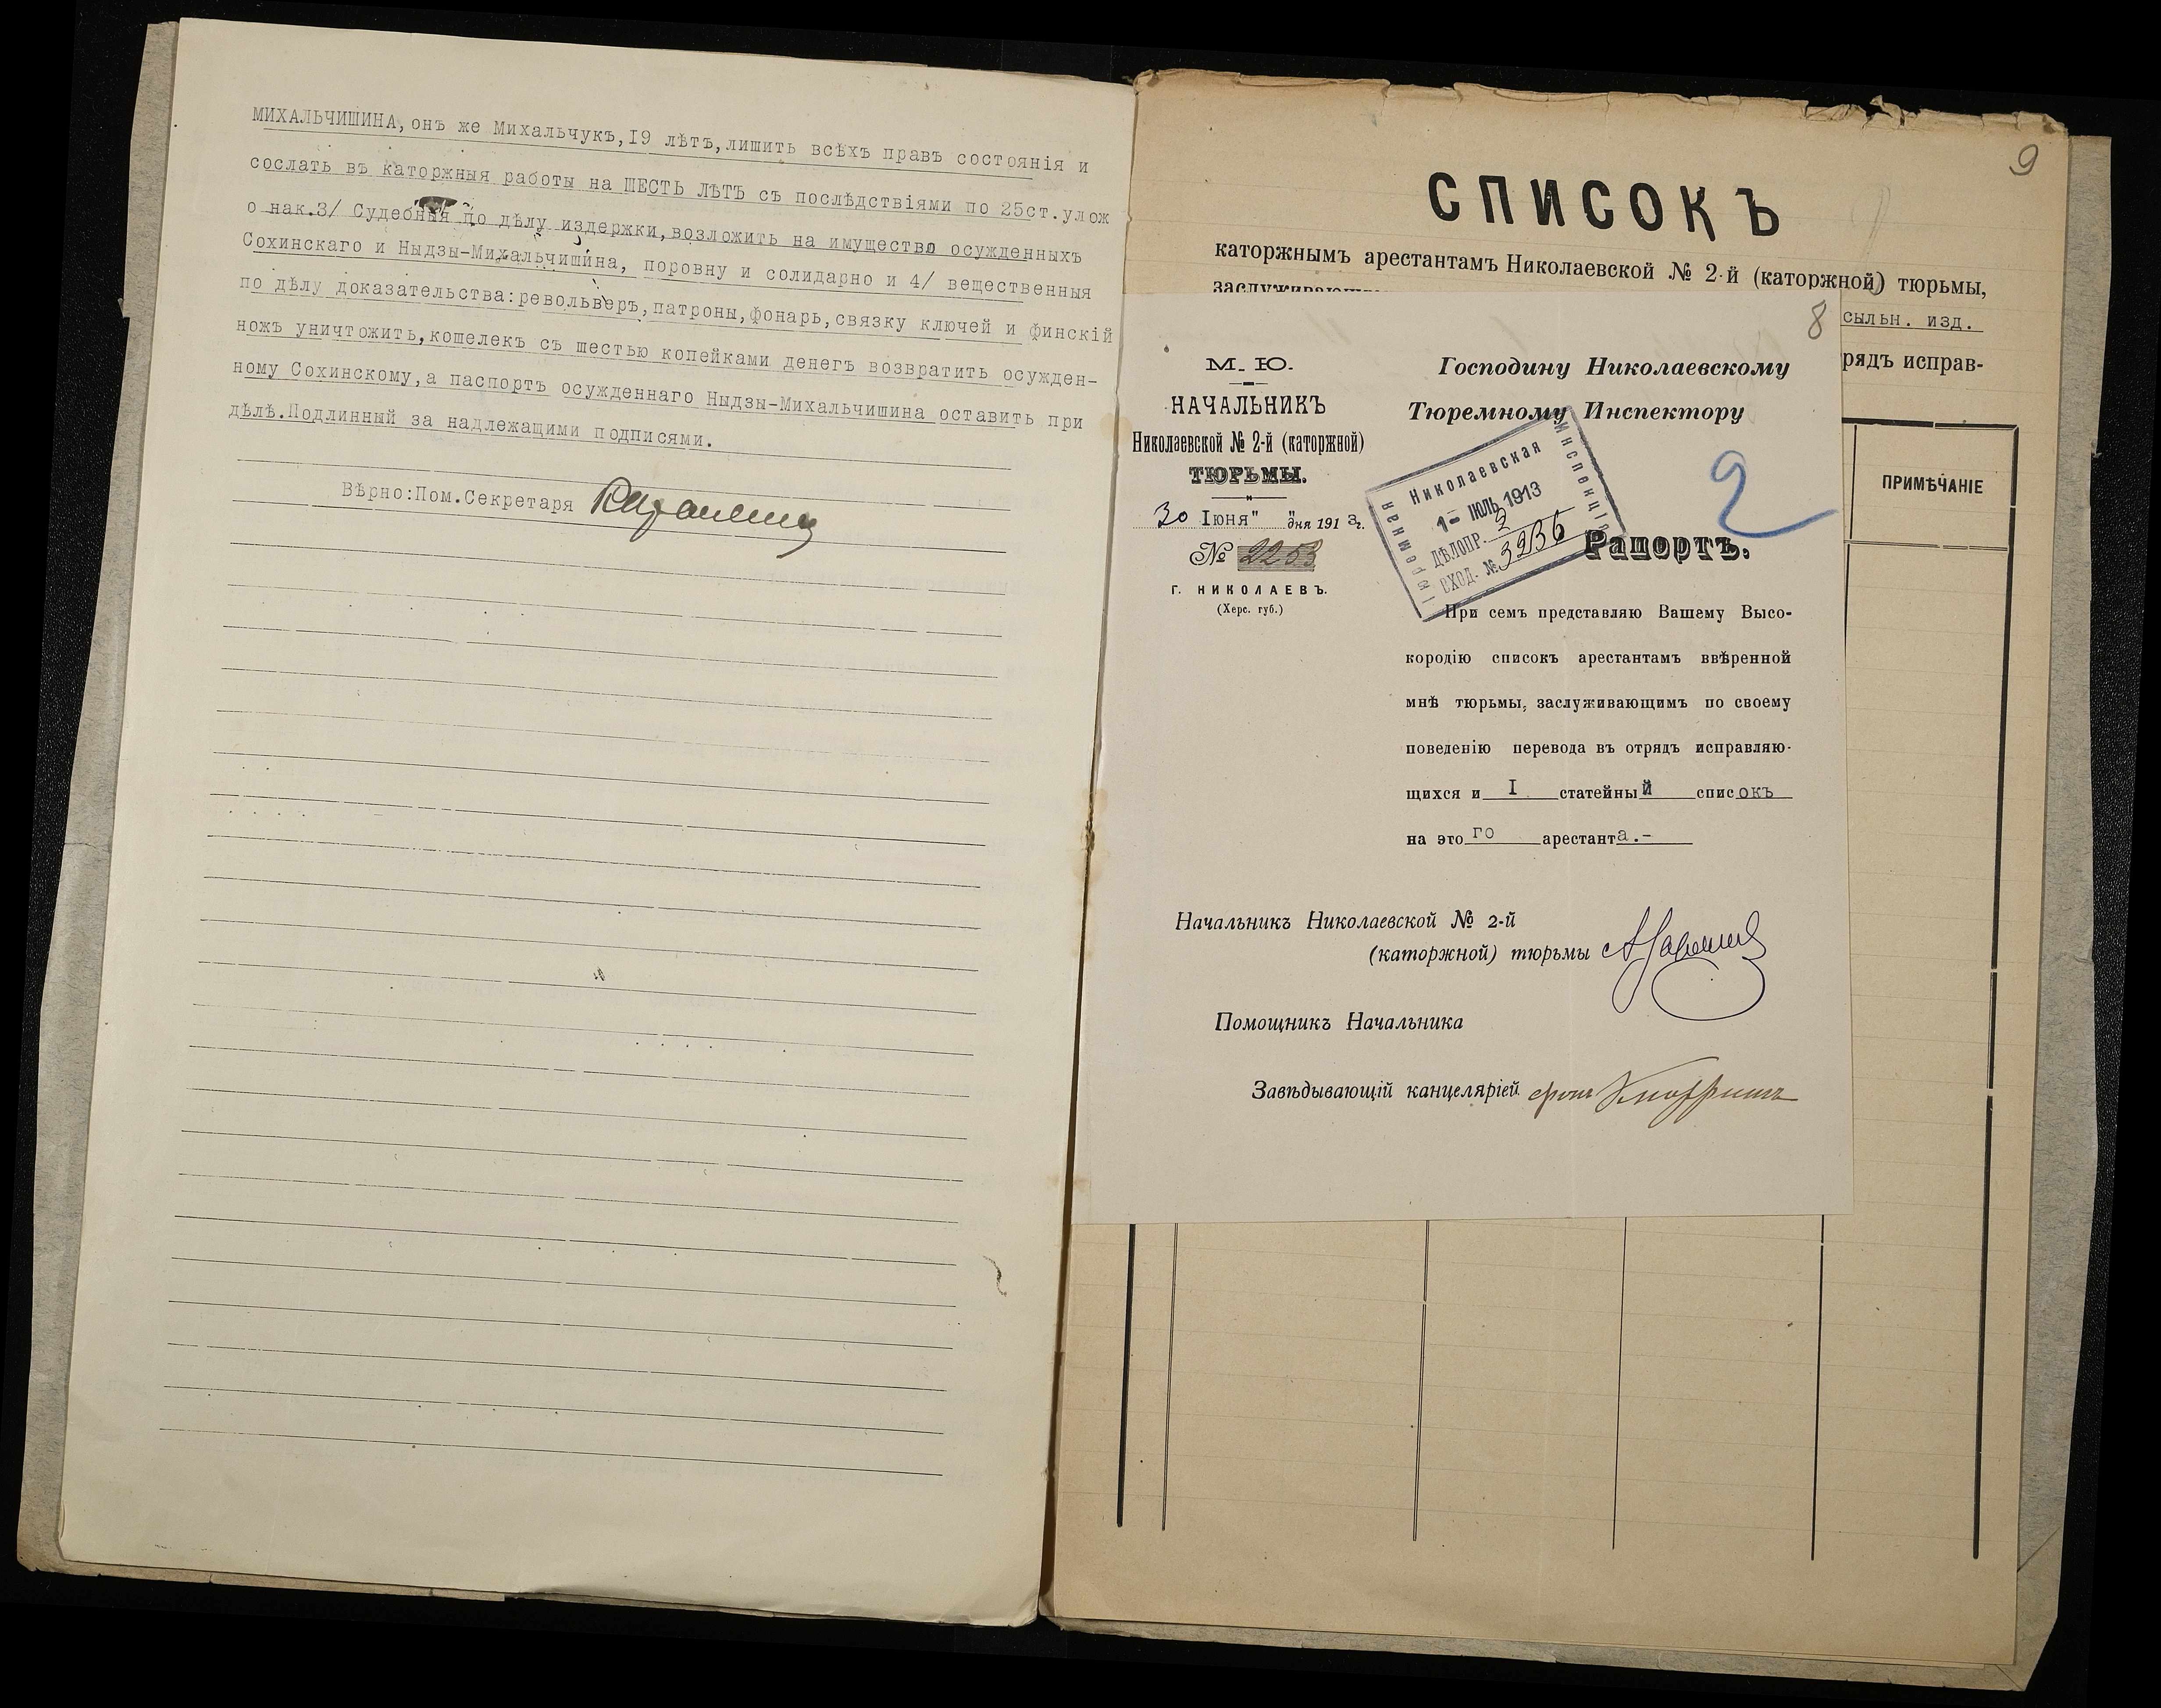 МИХАЛЬЧИШИНА, онъ же Михальчукъ, I9 лѣтъ, лишить всѣхъ правъ состоянія и
сослать въ каторжныя работы на ШЕСТЬ ЛѢТЪ съ послѣдствіями по 25ст. улож
о нак.3/ Судебныя по дѣлу издержки, возложить на имущество осужденныхъ
Сохинскаго и Ныдзы-Михальчишина, поровну и солидарно и 4/ вещественныя
по дѣлу доказательства: револьверъ, патроны, фонарь, связку ключей и финскій
ножъ уничтожить, кошелекъ съ шестью копейками денегъ возвратить осужден-
ному Сохинскому, а паспортъ осужденнаго Ныдзы-Михальчишина оставить при
дѣлѣ. Подлинный за надлежащими подписями.
Вѣрно: Пом. Секретаря
9
СПИСОКЪ
каторжнымъ арестантамъ Николаевской № 2-й (каторжной) тюрьмы,
заслуживающи
сыльн. изд.
рядъ исправ-
ПРИМѢЧАНІЕ
8
М. Ю.
НАЧАЛЬНИКЪ
Николаевской № 2-й (каторжной)
ТЮРЬМЫ.
30 Іюня" "дня 1913г.
№ 2253
Г. НИКОЛАЕВЪ.
(Херс. губ.)
Господину Николаевскому
Тюремному Инспектору
Николаевская
Тюремная Инспекція
1- ІЮЛЬ 1913
ДѢЛОПР. 2
ВХОД. № 3936
2
Рапортъ.
При семъ представляю Вашему Высо-
кородію списокъ арестантамъ ввѣренной
мнѣ тюрьмы, заслуживающимъ по своему
поведенію перевода въ отрядъ исправляю-
щихся и I статейный списокъ
на этого арестанта.-
Начальникъ Николаевской № 2-й
(каторжной) тюрьмы
Помощникъ Начальника
Завѣдывающій канцеляріей фонъ